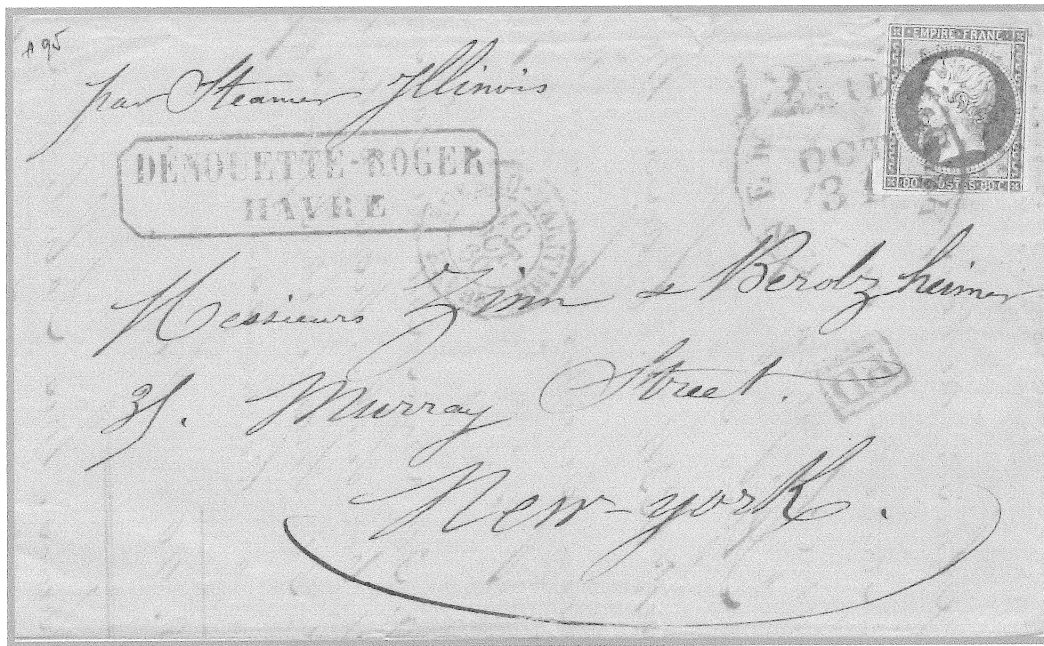 A 95
par Steamer Illinois
DÉNOUETTE-ROGER
HAVRE
EMPIRE FRANC
80 C POSTES 80 C
NEW YORK
OCT
31
Messieurs Zinn & Berolzheimer
35. Murray Street.
PD
New-york.